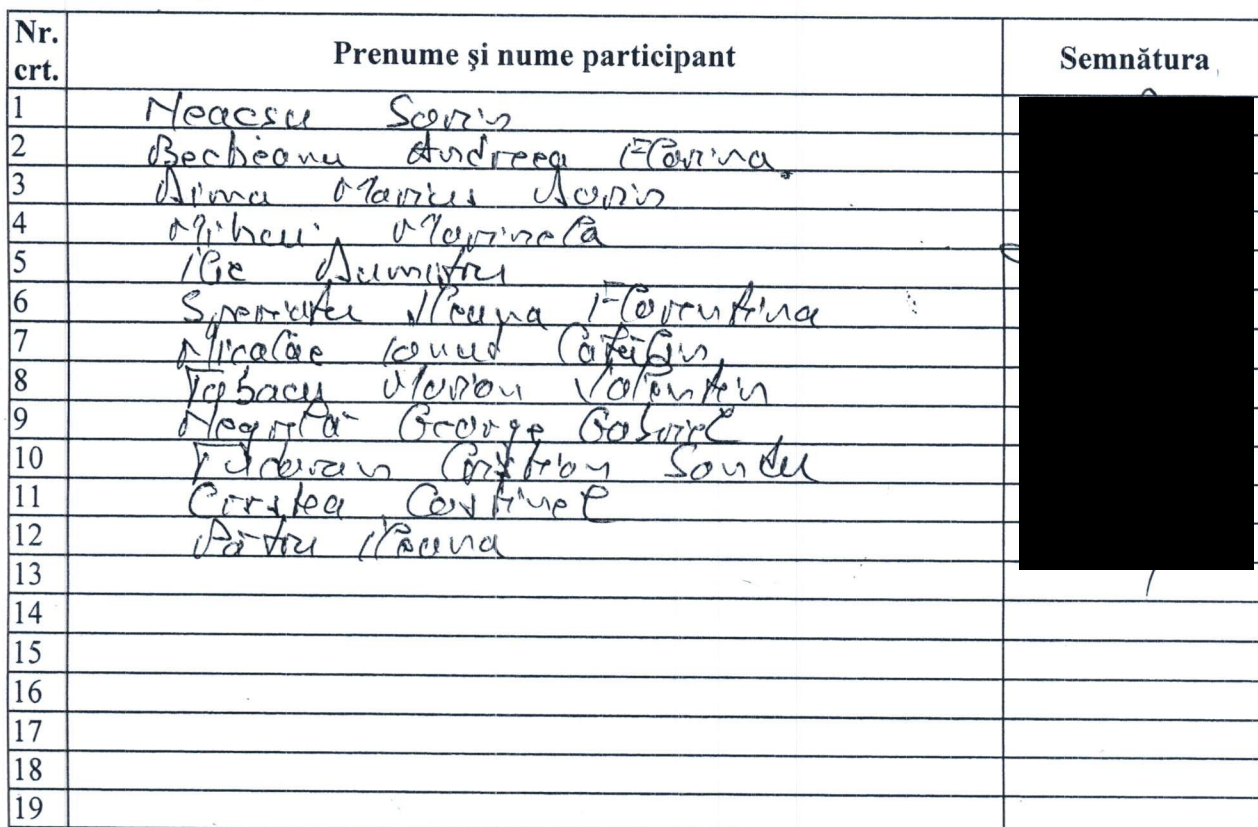 Nr. crt. Prenume şi nume participant Semnătura
1 Neacsu Sorin
2 Becheanu Andreea Florina
3 Dima Marius Sorin
4 Mihai Marinela
5 Ilie Dumitru
6 Ileana Florentina
7 Nicolae Ionut Cătălin
8 Tabacu Marion Valentin
9 George Gabriel
10 Tudoran Cristian Sandu
11 Cirstea Costinel
12 Pătru Ileana
13
14
15
16
17
18
19